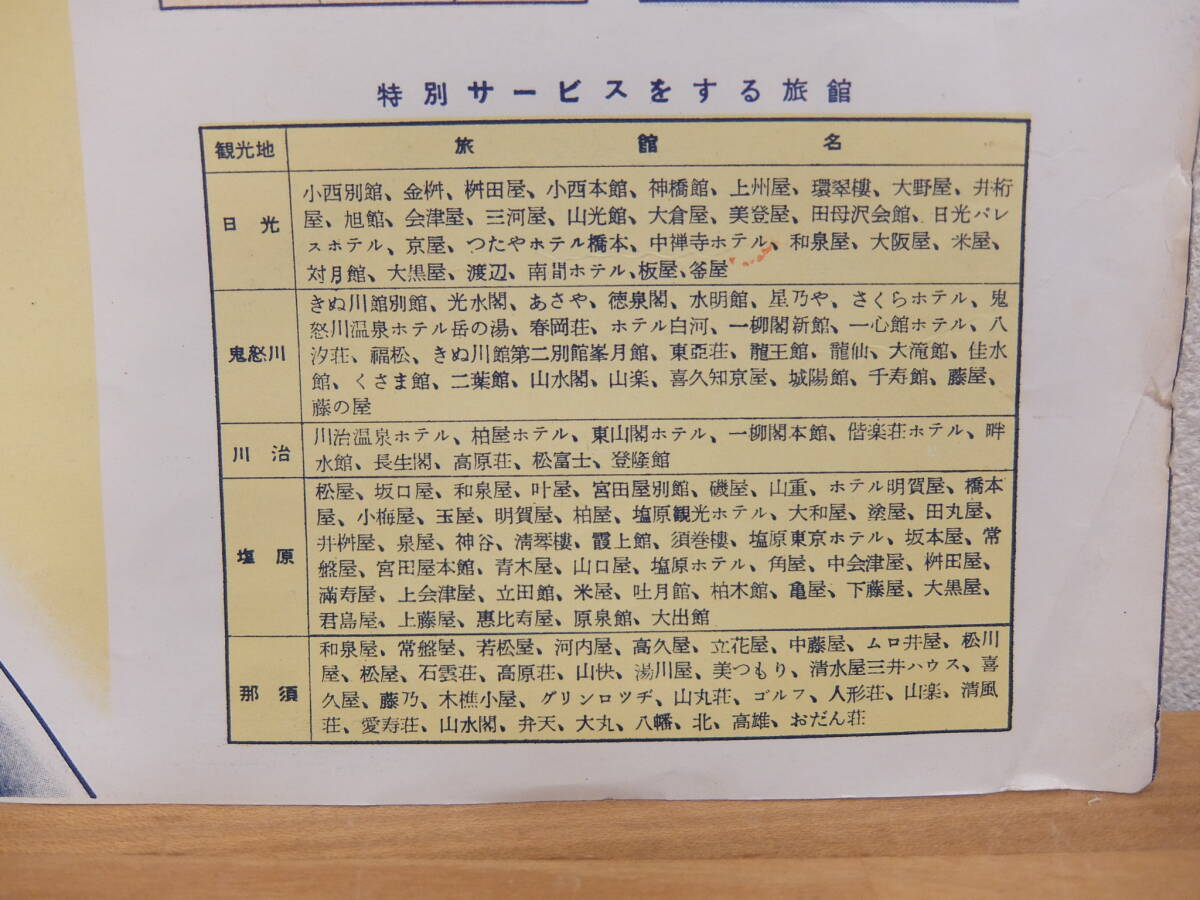 特別サービスをする旅館
観光地 旅館名
日光
小西別館、金桝、桝田屋、小西本館、神橋館、上州屋、環翠樓、大野屋、井桁
屋、旭館、会津屋、三河屋、山光館、大倉屋、美登屋、田母沢会館、日光パレ
スホテル、京屋、つたやホテル橋本、中禅寺ホテル、和泉屋、大阪屋、米屋、
対月館、大黒屋、渡辺、南間ホテル、板屋、釜屋
鬼怒川
きぬ川館別館、光水閣、あさや、徳泉閣、水明館、星乃や、さくらホテル、鬼
怒川温泉ホテル岳の湯、春岡荘、ホテル白河、一柳閣新館、一心館ホテル、八
汐荘、福松、きぬ川館第二別館峯月館、東亞荘、龍王館、龍仙、大滝館、佳水
館、くさま館、二葉館、山水閣、山楽、喜久知京屋、城陽館、千寿館、藤屋、
藤の屋
川治
川治温泉ホテル、柏屋ホテル、東山閣ホテル、一柳閣本館、偕楽荘ホテル、畔
水館、長生閣、高原荘、松富士、登隆館
塩原
松屋、坂口屋、和泉屋、叶屋、宮田屋別館、磯屋、山重、ホテル明賀屋、橋本
屋、小梅屋、玉屋、明賀屋、柏屋、塩原観光ホテル、大和屋、塗屋、田丸屋、
井桝屋、泉屋、神谷、清琴樓、霞上館、須巻樓、塩原東京ホテル、坂本屋、常
盤屋、宮田屋本館、青木屋、山口屋、塩原ホテル、角屋、中会津屋、桝田屋、
滿寿屋、上会津屋、立田館、米屋、吐月館、柏木館、亀屋、下藤屋、大黒屋、
君島屋、上藤屋、惠比寿屋、原泉館、大出館
那須
和泉屋、常盤屋、若松屋、河内屋、高久屋、立花屋、中藤屋、ムロ井屋、松川
屋、松屋、石雲荘、高原荘、山快、湯川屋、美つもり、清水屋三井ハウス、喜
久屋、藤乃、木樵小屋、グリンロツヂ、山丸荘、ゴルフ、人形荘、山楽、清風
荘、愛寿荘、山水閣、弁天、大丸、八幡、北、高雄、おだん荘